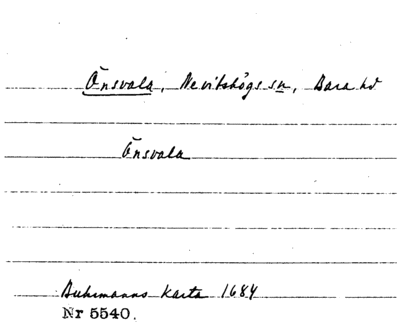 Önsvala, Nevitshögs sn, Bara hd
Önsvala
Buhrmanns karta 1684
Nr 5540.